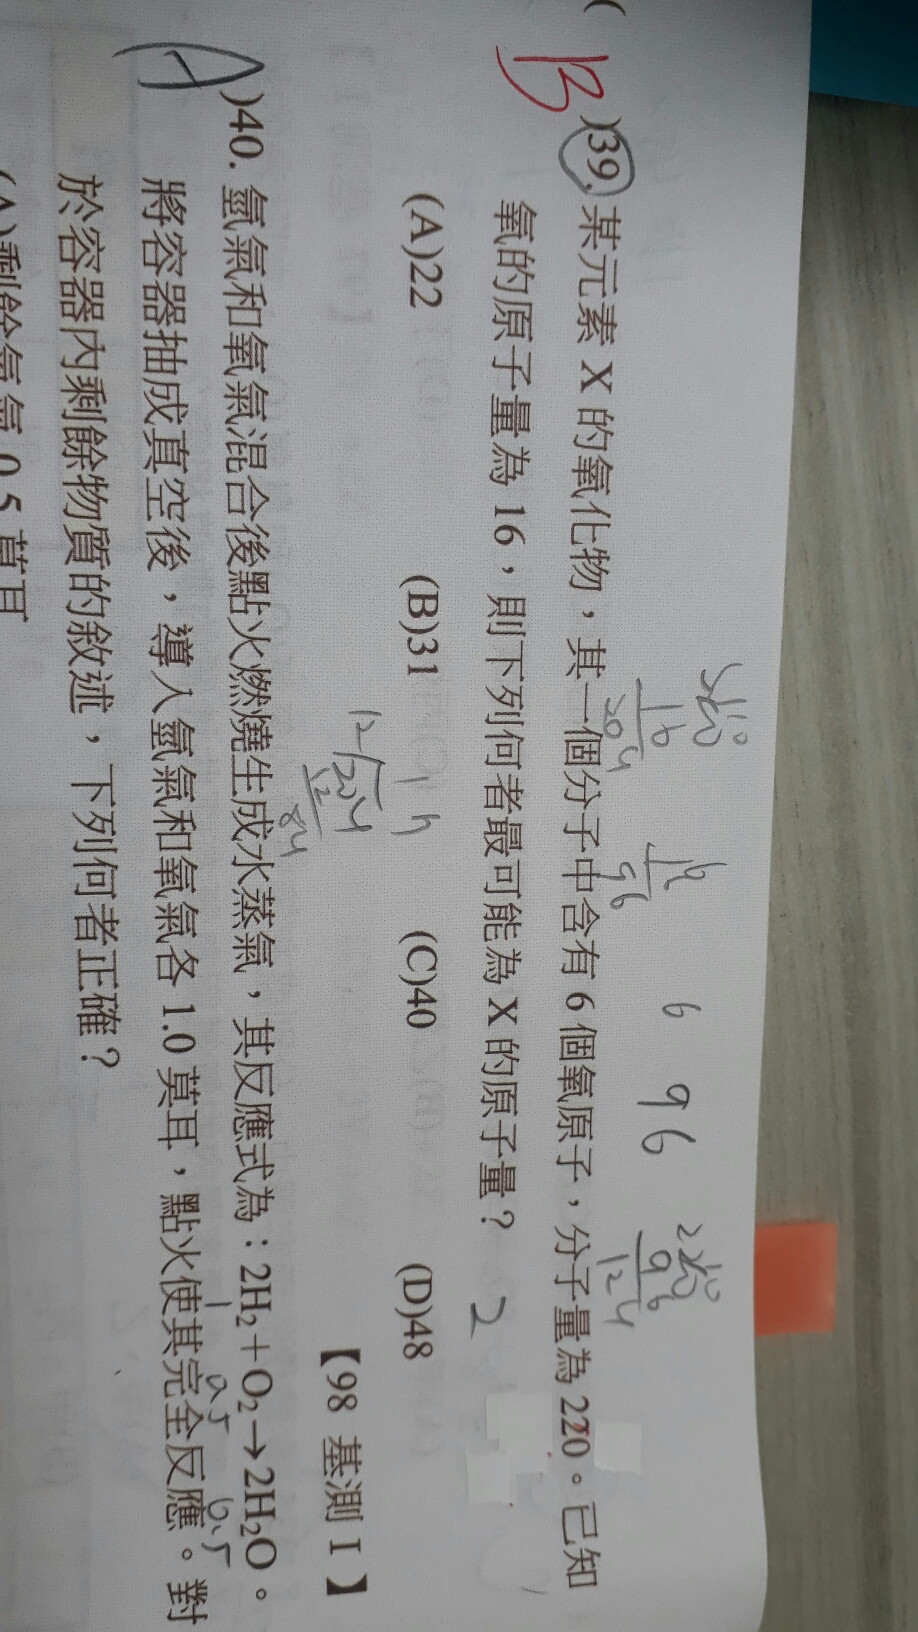 220
16
204
16
96
6
96
220
96
124
B )39. 某元素 X 的氧化物，其一個分子中含有 6 個氧原子，分子量為 220。已知
氧的原子量為 16，則下列何者最可能為 X 的原子量？ 2
(A)22 (B)31 (C)40 (D)48
12 204
12
84
【98 基測 I】
A )40. 氫氣和氧氣混合後點火燃燒生成水蒸氣，其反應式為：2H₂＋O₂→2H₂O。
1 0.5
將容器抽成真空後，導入氫氣和氧氣各 1.0 莫耳，點火使其完全反應。對
於容器內剩餘物質的敘述，下列何者正確？
(A)剩餘氧氣 0.5 莫耳